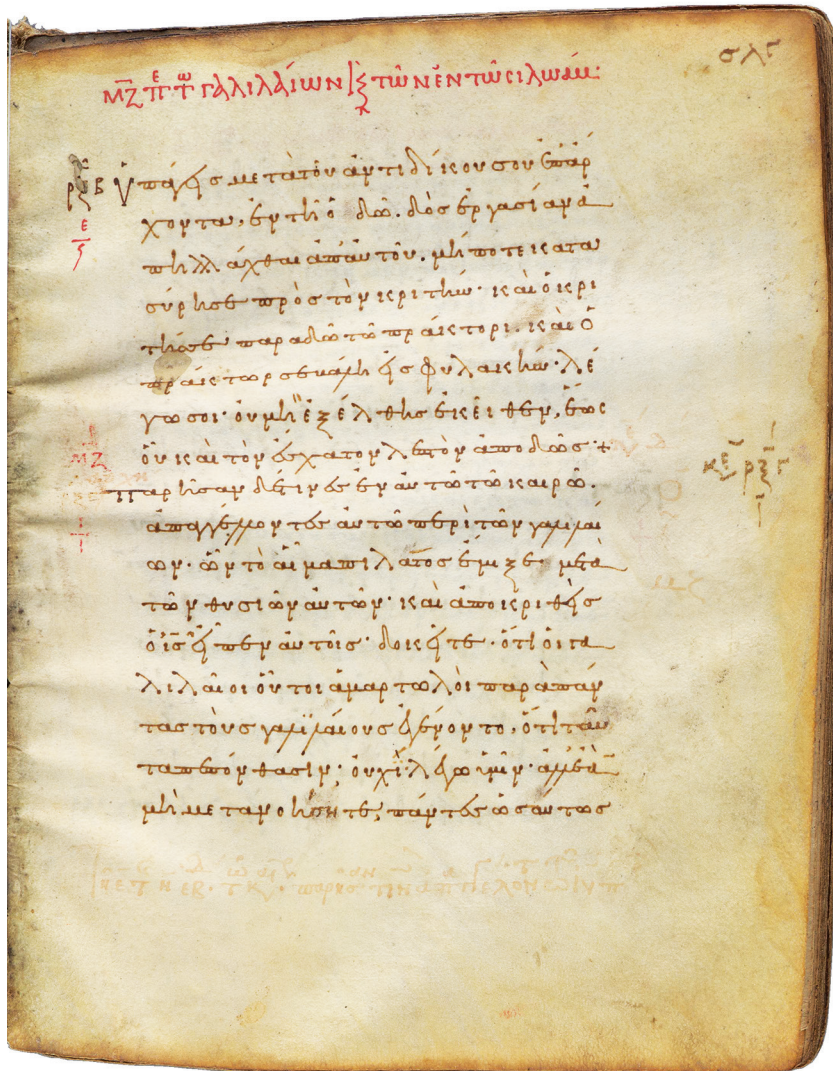 σλς
μζ π τ γαλιλαίων κ τῶν ἐν τῶ σιλωάμ:
ρξβ ὑπάγεις μετὰ τοῦ ἀντιδίκου σου ἐπ' ἄρ
χοντα, ἐν τῆ ὁδῶ. δὸς ἐργασίαν ἀ
πηλλάχθαι ἀπ' αὐτοῦ. μήποτε κατα
σύρη σε πρὸς τὸν κριτήν· καὶ ὁ κρι
τής σε παραδῶ τῶ πράκτορι. καὶ ὁ
πράκτωρ σε βάλη εἰς φυλακήν· λέ
γω σοι· οὐ μὴ ἐξέλθης ἐκεῖθεν, ἕως
οὗ καὶ τὸν ἔσχατον λεπτὸν ἀποδῶς +
μζ
παρῆσαν δέ τινες ἐν αὐτῶ τῶ καιρῶ.
ἀπαγγέλλοντες αὐτῶ περὶ τῶν γαλιλαί
ων· ὧν τὸ αἷμα πιλᾶτος ἔμιξε μετὰ
τῶν θυσιῶν αὐτῶν· καὶ ἀποκριθεὶς
ὁ ις εἶπεν αὐτοῖς· δοκεῖτε· ὅτι οἱ γα
λιλαῖοι οὗτοι ἁμαρτωλοὶ παρὰ πάν
τας τοὺς γαλιλαίους ἐγένοντο, ὅτι ταῦ
τα πεπόνθασιν; οὐχὶ λέγω ὑμῖν· ἀλλ' ἐὰ
μὴ μετανοήσητε, πάντες ὡσαύτως